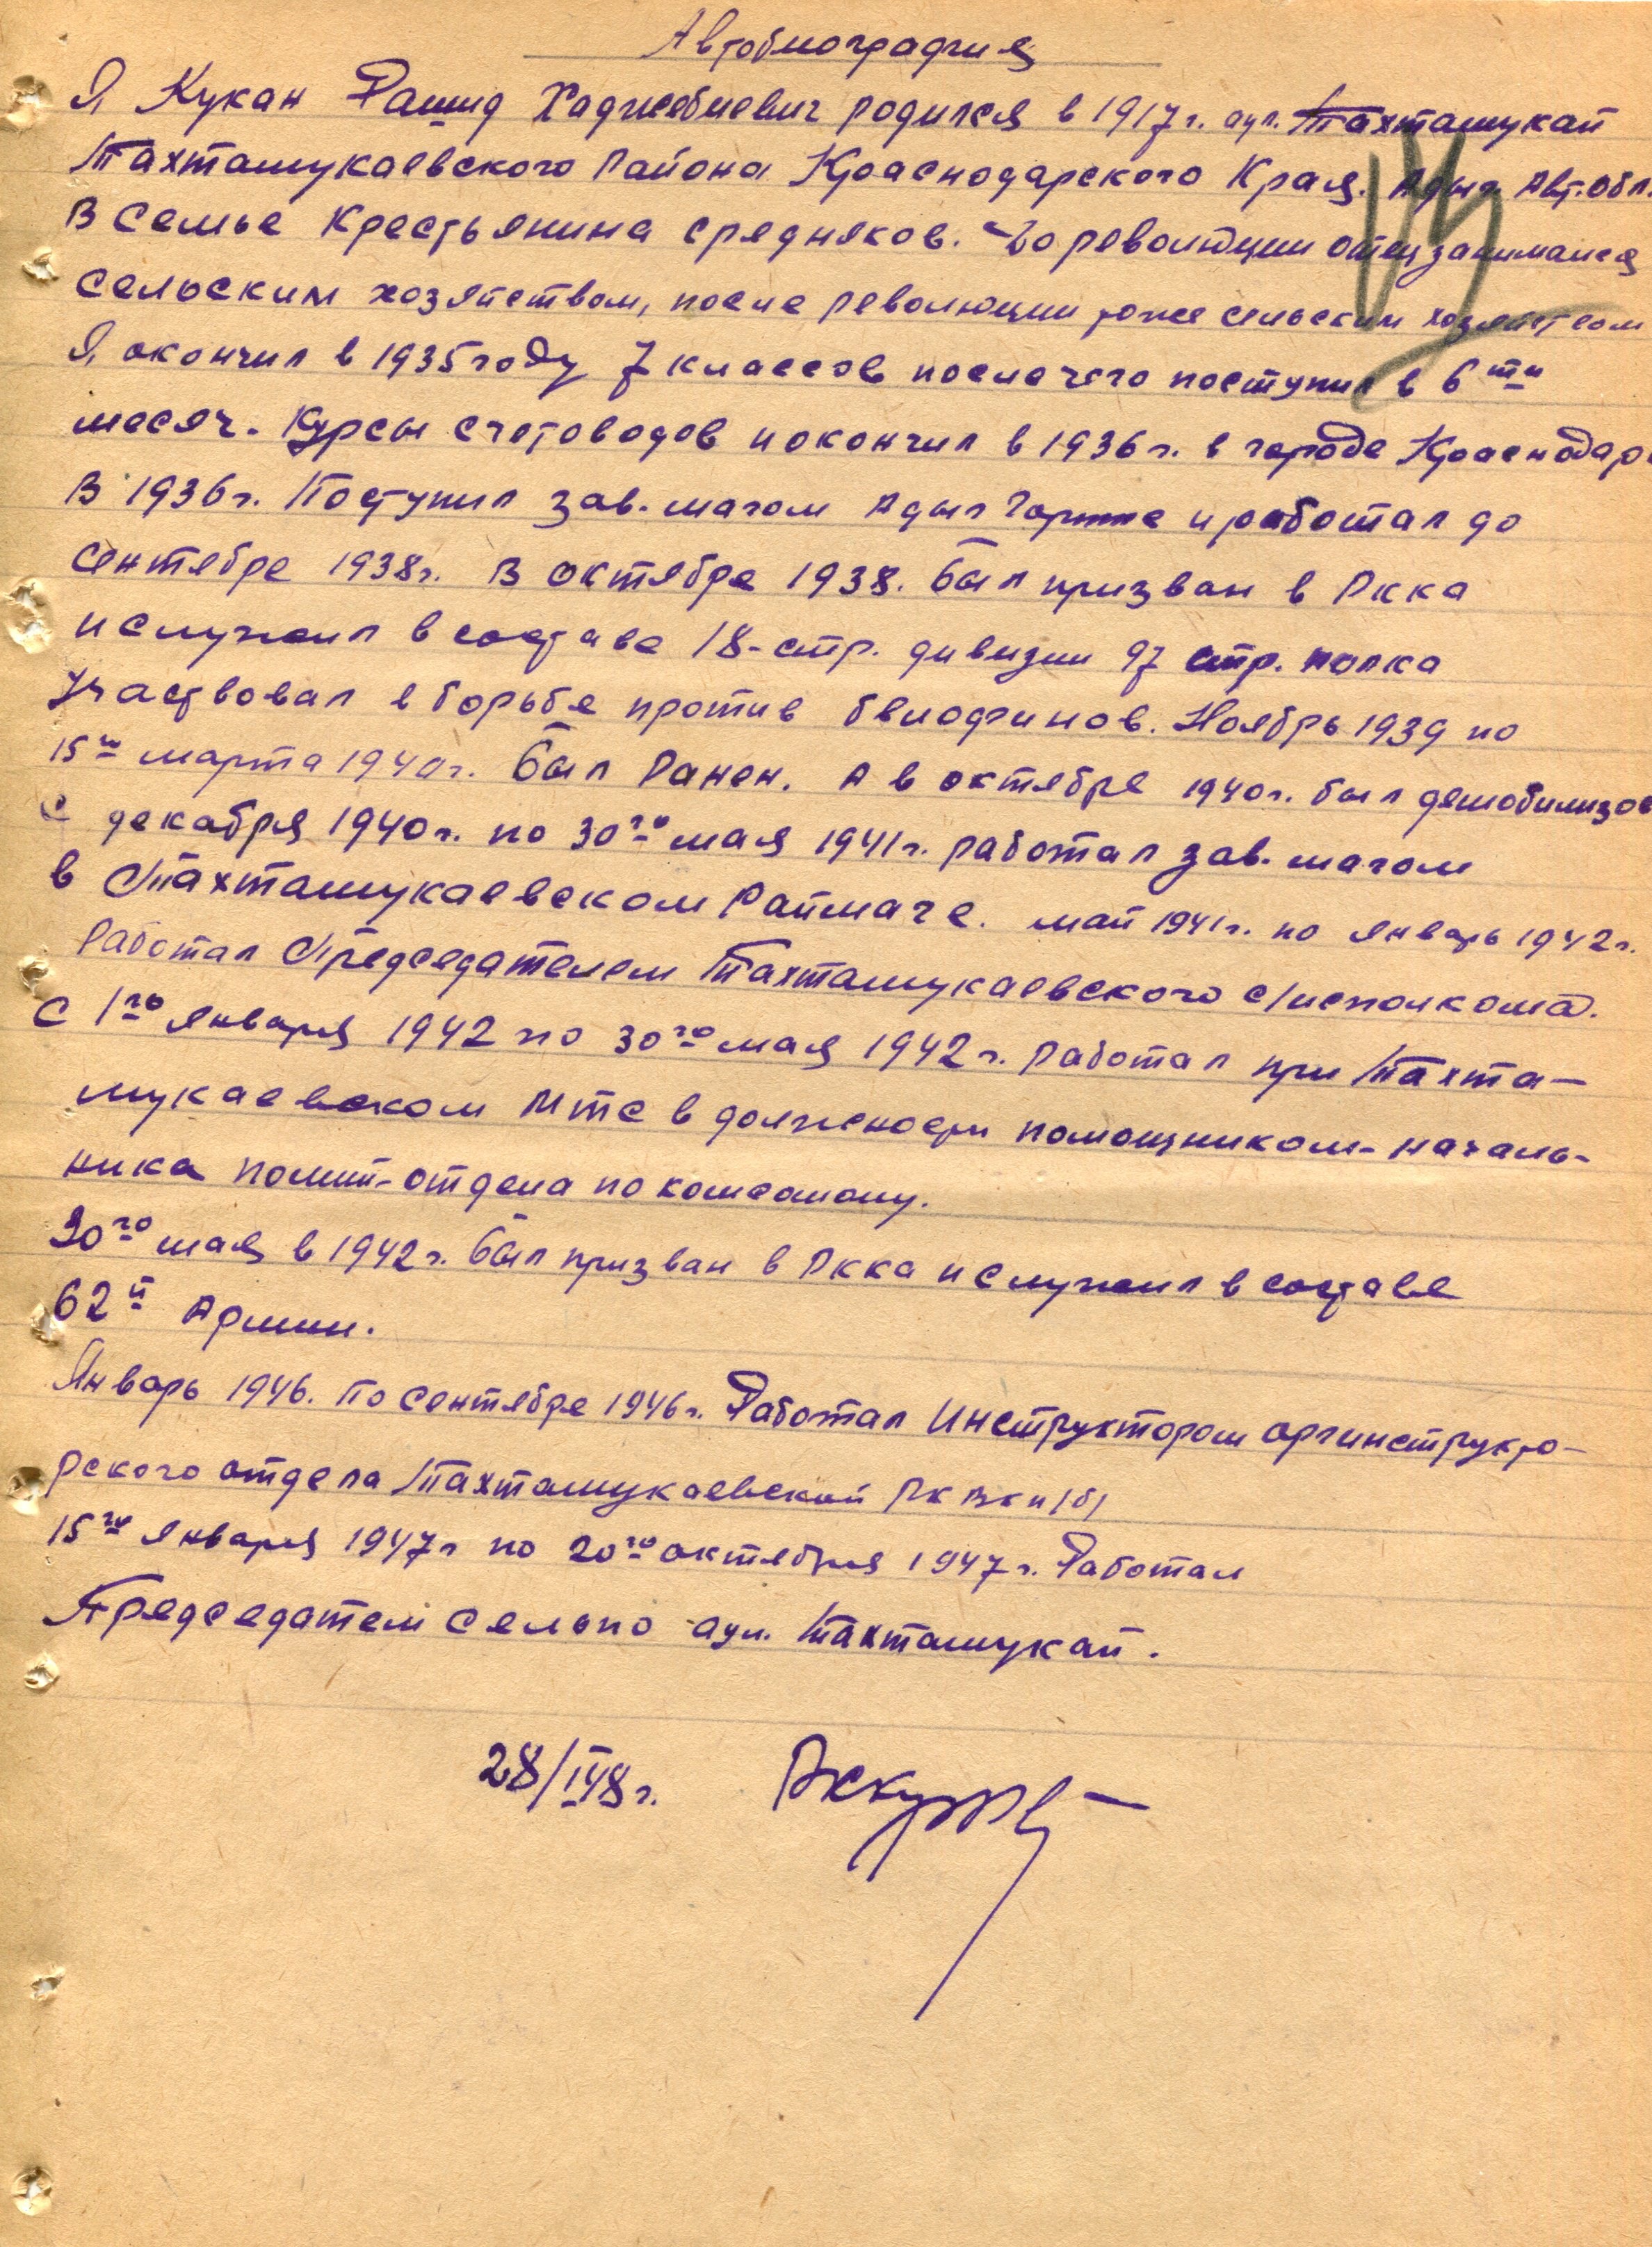 Автобиография
Я Кукан Рашид Хаджебиевич родился в 1917г. аул. Тахтамукай
Тахтамукаевского Района Краснодарского Края. Адыг. Авт. Обл.
В семье крестьянина средняков. До революции отец занимался
сельским хозяйством, после революции тоже сельским хозяйством
Я окончил в 1935 году 7 классов после чего поступил в 6ти
месяч. курсы счетоводов и окончил в 1936г. в городе Краснодар
В 1936г. Поступил зав. магом Адыг и работал до
сентябре 1938г. В октябре 1938. был призван в Ркка
и служил в составе 18-стр. дивизии 97 стр. полка
Участвовал в борьбе против белофинов. Ноябрь 1939 по
15го марта 1940г. был Ранен. А в октябре 1940г. был демобилизов
С декабря 1940г. по 30го мая 1941г. работал зав. магом
в Тахтамукаевском Раймаге. май 1941г. по январь 1942г.
Работал Председателем Тахтамукаевского с/исполкома.
С 1го января 1942 по 30го мая 1942г. работал при Тахта-
мукаевском Мтс в должности помощником-началь-
ника полит-отдела по комсомолу.
30го мая в 1942г. был призван в Ркка и служил в составе
62й Армии.
Январь 1946. По сентябре 1946г. Работал Инструктором оргинструкто-
рского отдела Тахтамукаевской Рк Вкп/б/
15го января 1947г по 20го октября 1947г. Работал
Председателем Сельпо аул. Тахтамукай.
28/IV48г.